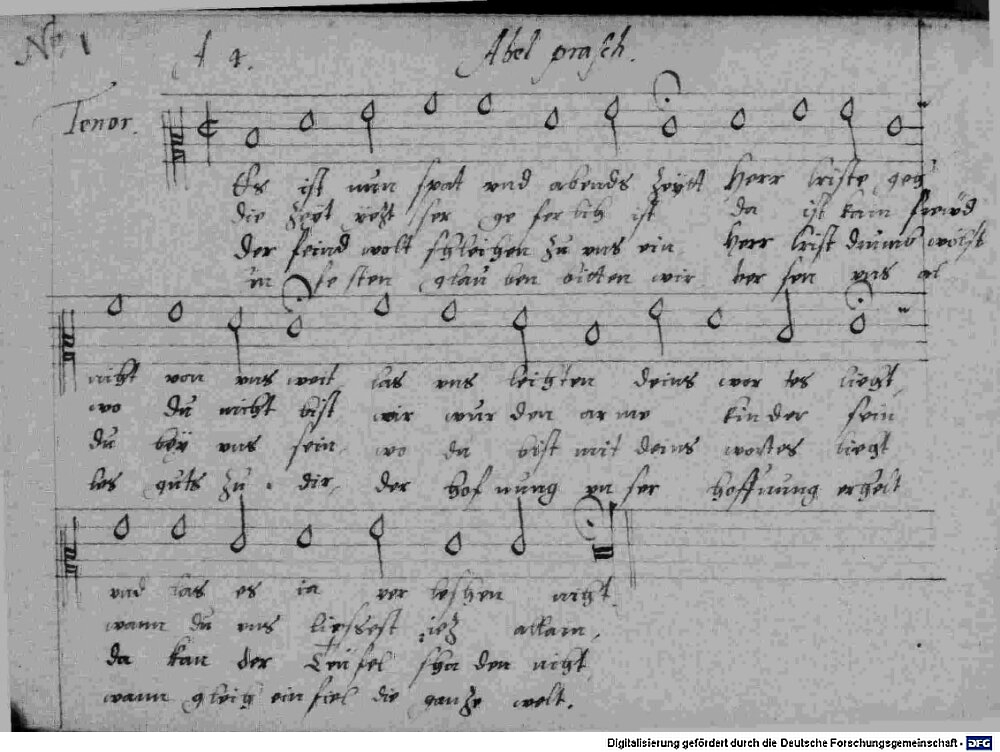 Nr. 1
A 4. Abel prasch.
Tenor.
Es ist nun spat und abends Zeytt Herr Criste geh
die Zeyt yezt ser ge ferlich ist da ist kain freud
der feind wolt schleichen Zu uns ein Herr Crist drumb wölst
im fe sten glau ben bitten wir ver sen uns al
nicht von uns weit las uns leichten deins wor tes liecht
wo du nicht bist wir wur den ar me kin der sein
du bey uns sein, wo du bist mit deins wortes liecht
les guts Zu dir, der hof nung un ser hoffnung erhelt
und las es ia ver leschen nicht
wann du uns liessest iez allain,
da kan der Teufel scha den nicht
wann gleich ein fiel die ganze welt.
Digitalisierung gefördert durch die Deutsche Forschungsgemeinschaft - DFG